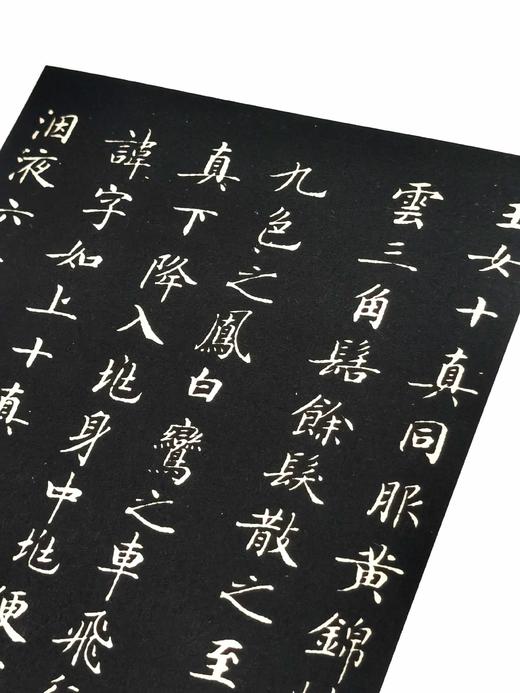 女十真同服黄錦
雲三角髻餘髮散之至
九色之鳳白鸞之車飛行
真下降入兆身中兆便
諱字如上十真
洇液六